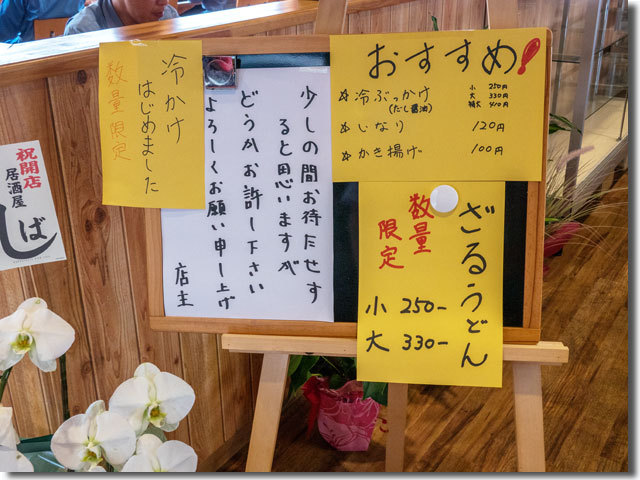 冷かけ
はじめました
数量限定
少しの間お待たせす
ると思いますが
どうかお許し下さい
よろしくお願い申し上げ
店主
おすすめ!
☆冷ぶっかけ
(だし醤油)
小 250円
大 330円
特大 410円
☆いなり 120円
☆かき揚げ 100円
ざるうどん
数量
限定
小 250-
大 330-
祝開店
居酒屋
しば